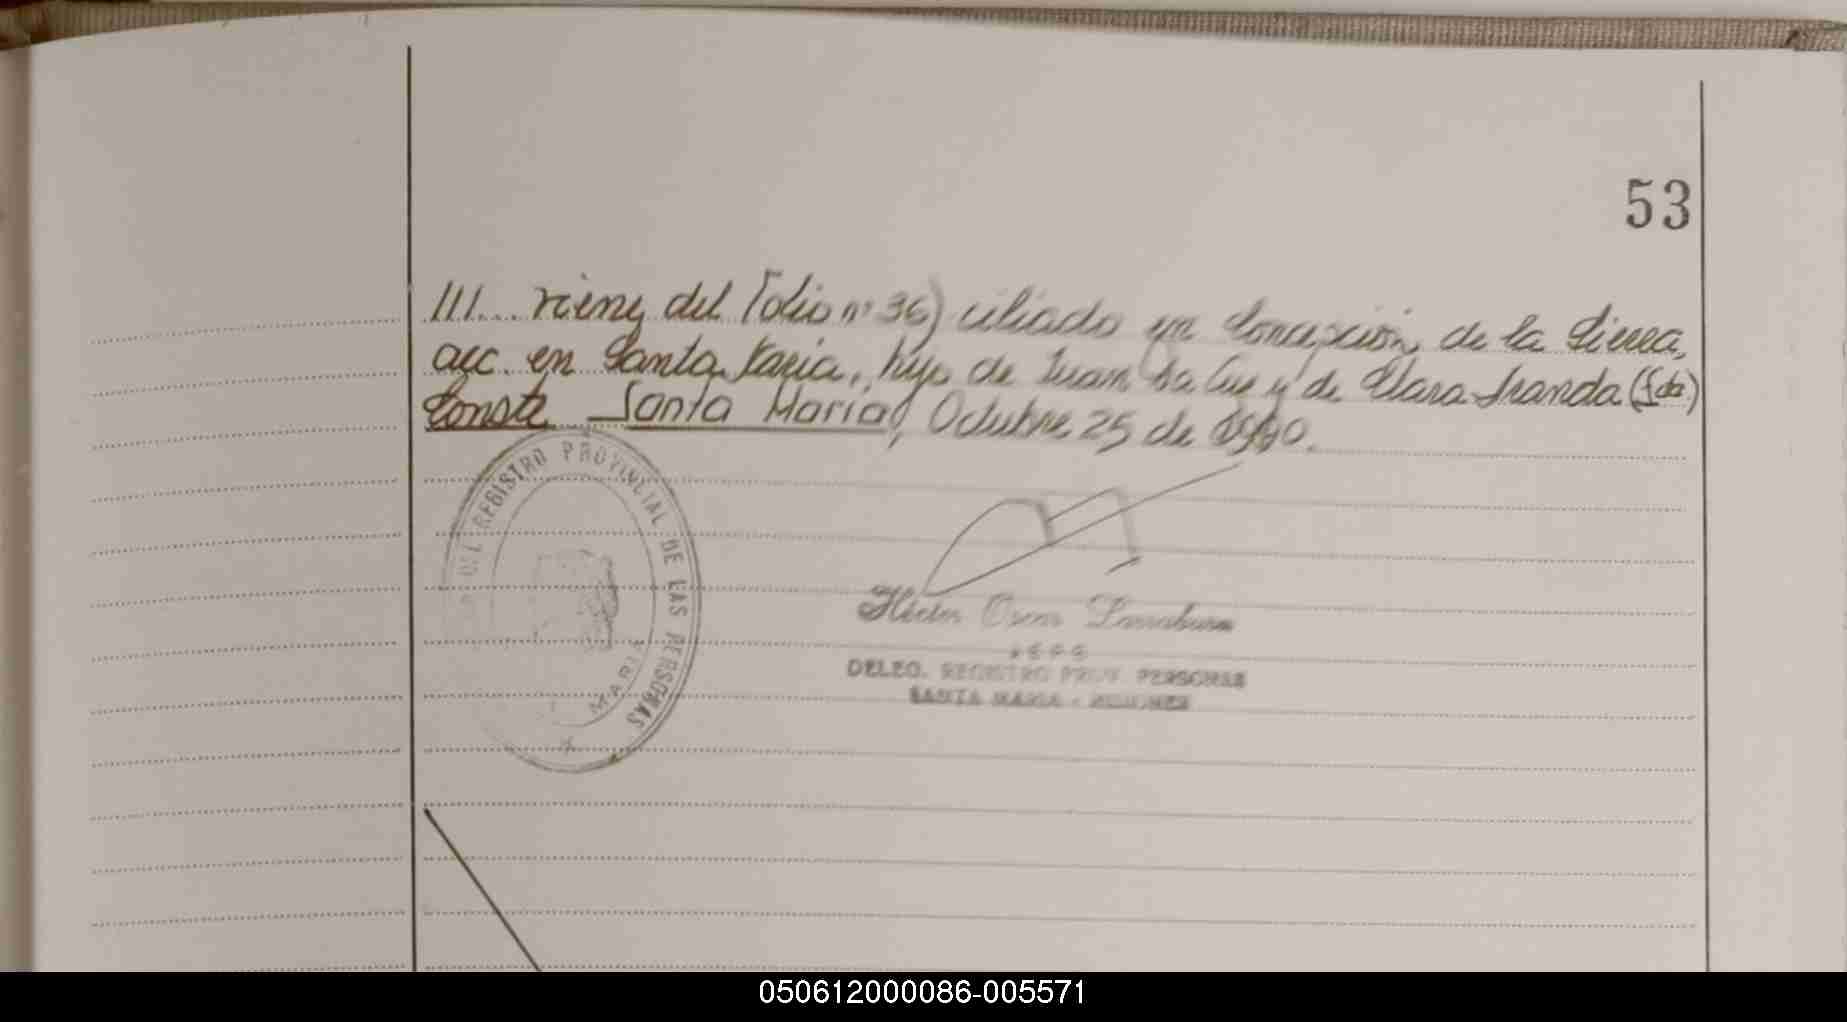 53
III... viene del Folio nº 36) ciliado en Concepción de la Sierra,
acc. en Santa María, hijo de Juan Da Luz y de Clara Miranda (fda)
Conste Santa María, Octubre 25 de 1990.
DEL REGISTRO PROVINCIAL DE LAS PERSONAS
MARIA
Héctor Oscar
JEFE
DELEG. REGISTRO PROV. PERSONAS
SANTA MARIA - MISIONES
050612000086-005571